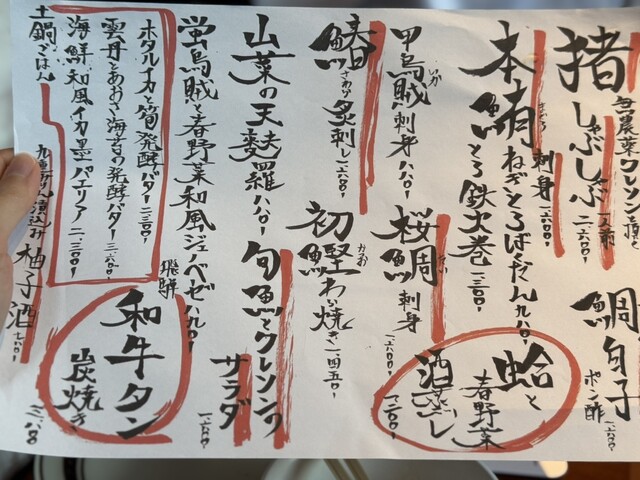 猪しゃぶしゃぶ 一人前 二六〇〇-
無農薬クレソン
鯛白子
ポン酢
本鮪 刺身 一六〇〇-
まぐろ
ねぎとろばくだん 九八〇-
とろ鉄火巻 一三〇〇-
蛤と春野菜
酒蒸し
甲烏賊 刺身 八八〇-
いか
桜鯛 刺身
たい
鰆 炙刺し 一六〇〇-
さわら
初鰹わら焼き 一四五〇-
かつお
山菜の天麩羅 八八〇-
旬魚とクレソンの
サラダ
蛍烏賊と春野菜和風ジェノベーゼ 一八九〇-
飛騨
和牛タン
炭焼き
土鍋ごはん
ホタルイカと筍 発酵バター 二三〇〇-
雲丹とあおさ海苔の発酵バター 三六〇〇-
海鮮和風イカ墨パエリア 二一三〇〇-
柚子酒